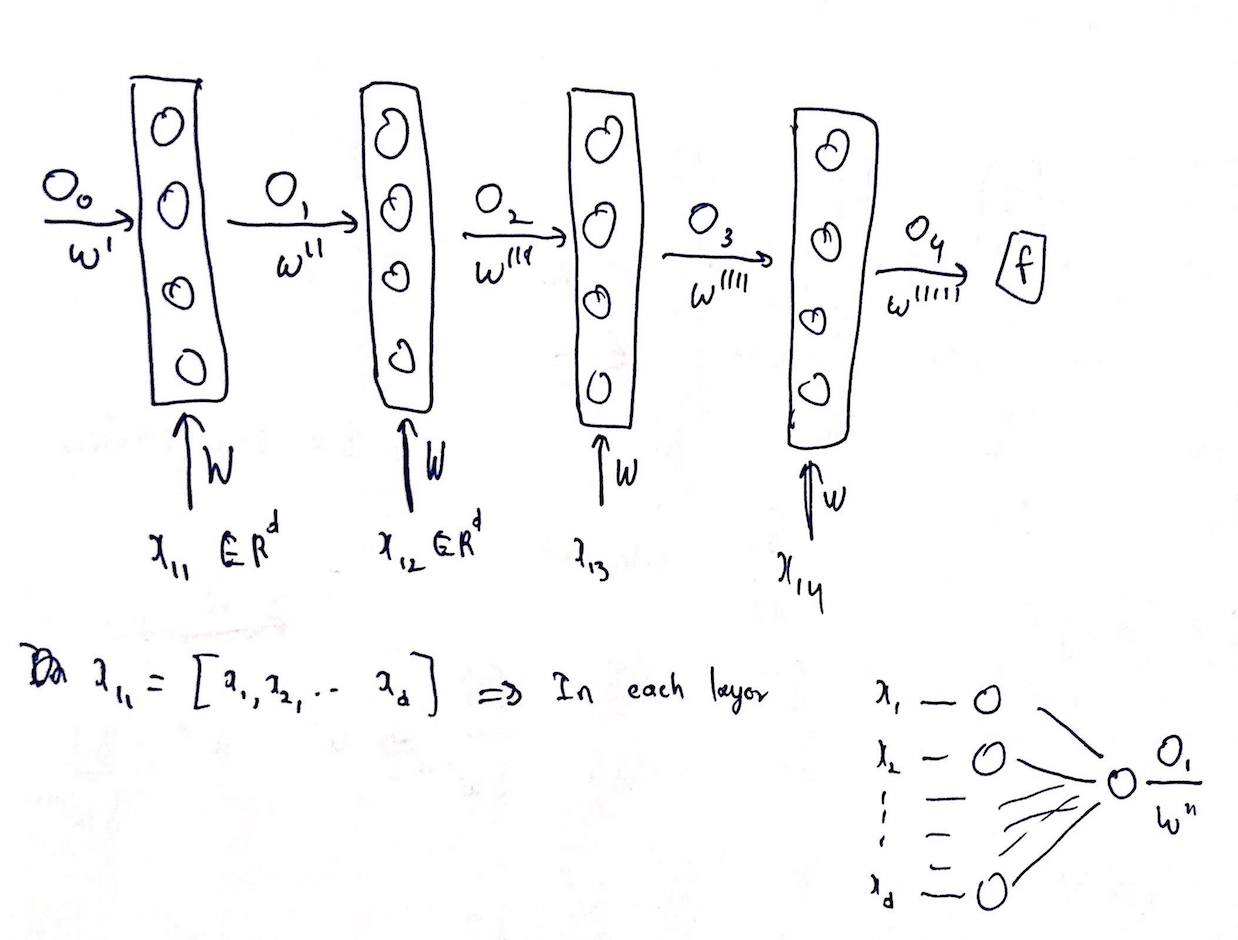 O₀ O₁ O₂ O₃ O₄
w' w'' w''' w'''' w''''' f
W W W W
x₁₁ ∈ R^d x₁₂ ∈ R^d x₁₃ x₁₄
x₁₁ = [x₁, x₂, .. x_d] => In each layer
x₁
x₂ O₁
w''
x_d